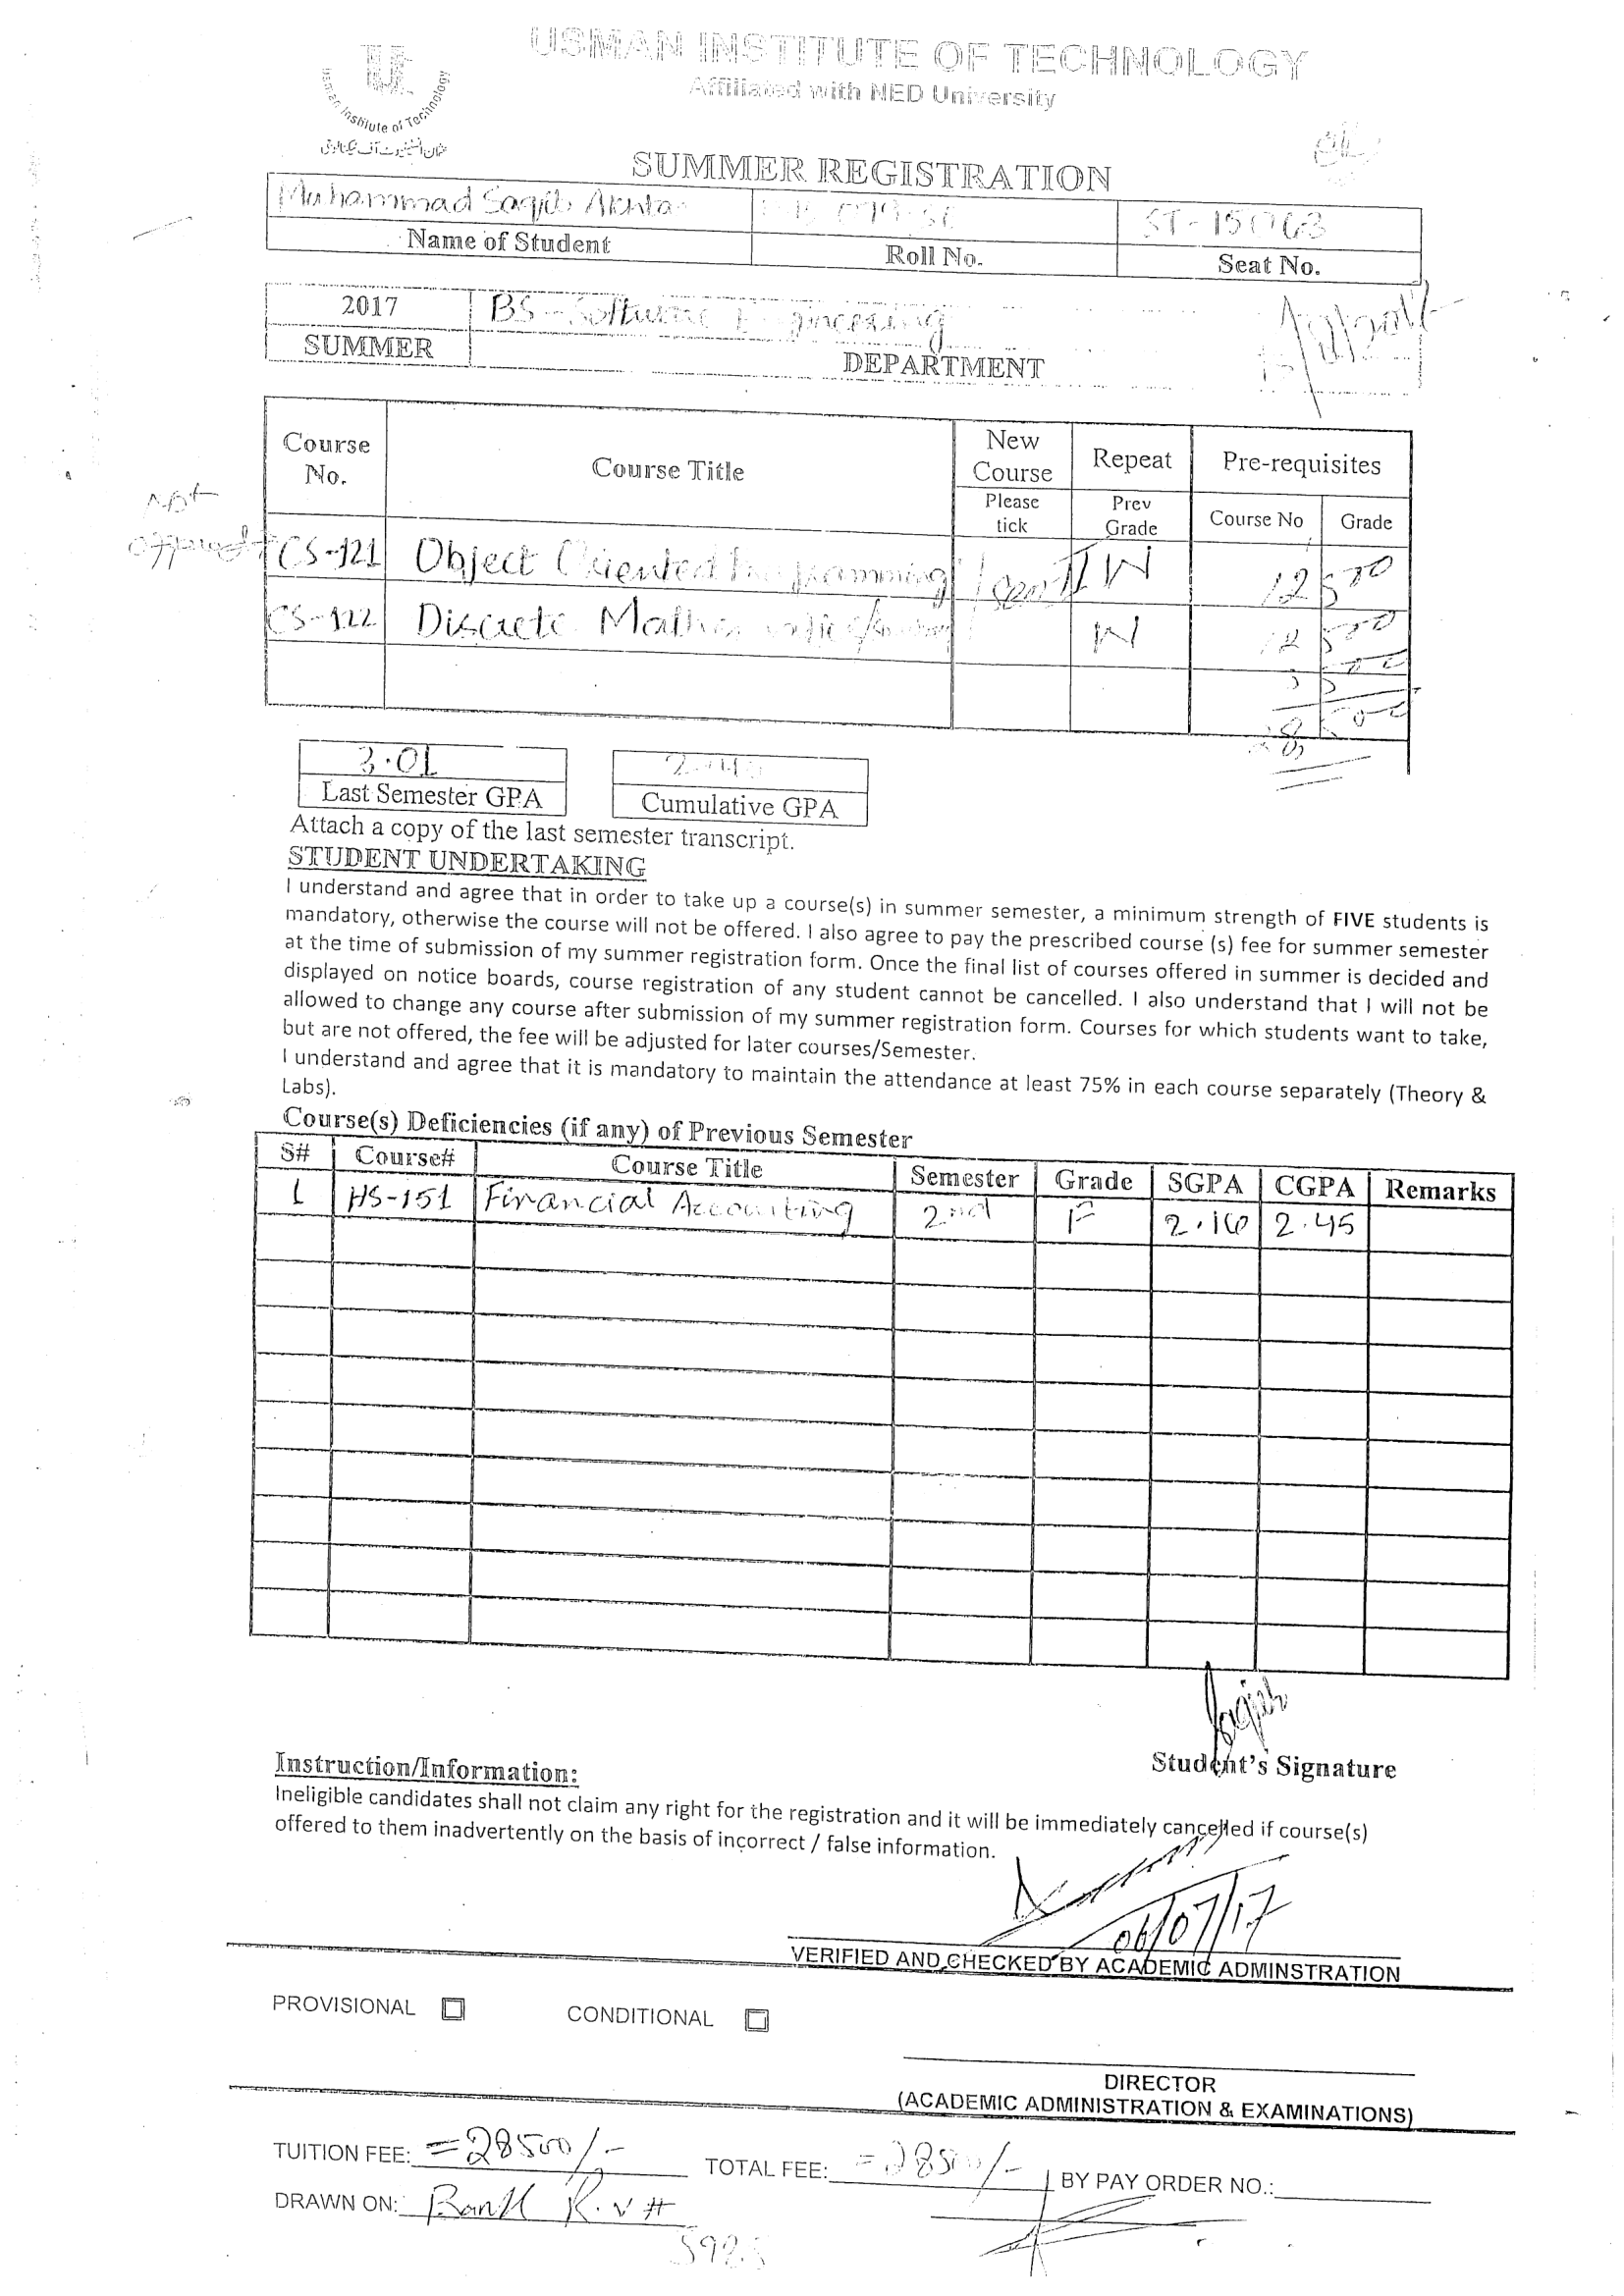 USMAN INSTITUTE OF TECHNOLOGY
Affiliated with NED University
Usman Institute of Technology
SUMMER REGISTRATION
Muhammad Saqib Akhta
ST-15063
Name of Student Roll No. Seat No.
2017 BS-Software Engineering
SUMMER DEPARTMENT
Course No. Course Title New Course Repeat Pre-requisites
Please tick Prev Grade Course No Grade
Not
CS-121 Object Oriented Programming W 12500
CS-122 Discrete W
3.01
Last Semester GPA Cumulative GPA
Attach a copy of the last semester transcript.
STUDENT UNDERTAKING
I understand and agree that in order to take up a course(s) in summer semester, a minimum strength of FIVE students is
mandatory, otherwise the course will not be offered. I also agree to pay the prescribed course (s) fee for summer semester
at the time of submission of my summer registration form. Once the final list of courses offered in summer is decided and
displayed on notice boards, course registration of any student cannot be cancelled. I also understand that I will not be
allowed to change any course after submission of my summer registration form. Courses for which students want to take,
but are not offered, the fee will be adjusted for later courses/Semester.
I understand and agree that it is mandatory to maintain the attendance at least 75% in each course separately (Theory &
Labs).
Course(s) Deficiencies (if any) of Previous Semester
S# Course# Course Title Semester Grade SGPA CGPA Remarks
1 HS-151 Financial Accounting 2nd F 2.16 2.45
Student's Signature
Instruction/Information:
Ineligible candidates shall not claim any right for the registration and it will be immediately cancelled if course(s)
offered to them inadvertently on the basis of incorrect / false information.
06/07/17
VERIFIED AND CHECKED BY ACADEMIC ADMINSTRATION
PROVISIONAL CONDITIONAL
DIRECTOR
(ACADEMIC ADMINISTRATION & EXAMINATIONS)
TUITION FEE: =28500/- TOTAL FEE: =28500/- BY PAY ORDER NO.:
DRAWN ON: Bank R.v #